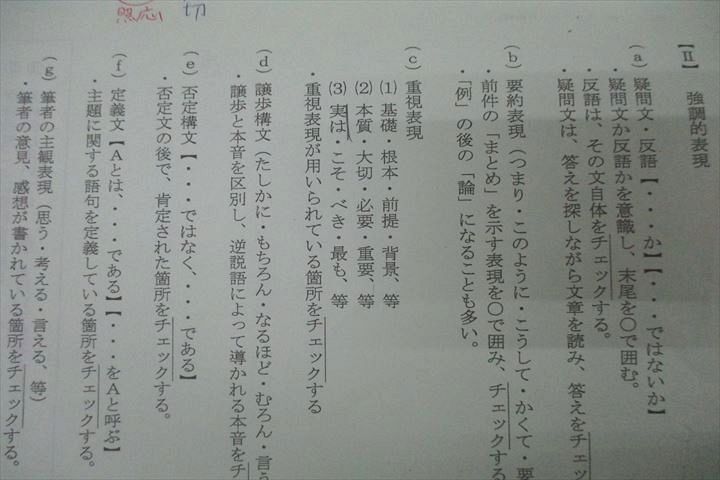 【Ⅱ】 強調的表現
(a) 疑問文・反語【・・・か】【・・・ではないか】
・疑問文か反語かを意識し、末尾を〇で囲む。
・反語は、その文自体をチェックする。
・疑問文は、答えを探しながら文章を読み、答えをチェッ
(b) 要約表現(つまり・このように・こうして・かくて・要
・前件の「まとめ」を示す表現を〇で囲み、チェックする
・「例」の後の「論」になることも多い。
(c) 重視表現
(1) 基礎・根本・前提・背景、等
(2) 本質・大切・必要・重要、等
(3) 実は・こそ・べき・最も、等
・重視表現が用いられている箇所をチェックする
(d) 譲歩構文(たしかに・もちろん・なるほど・むろん・言う
・譲歩と本音を区別し、逆説語によって導かれる本音をチ
(e) 否定構文【・・・ではなく、・・・である】
・否定文の後で、肯定された箇所をチェックする。
(f) 定義文【Aとは、・・・である】【・・・をAと呼ぶ】
・主題に関する語句を定義している箇所をチェックする。
(g) 筆者の主観表現(思う・考える・言える、等)
・筆者の意見、感想が書かれている箇所をチェックする。
切
照応